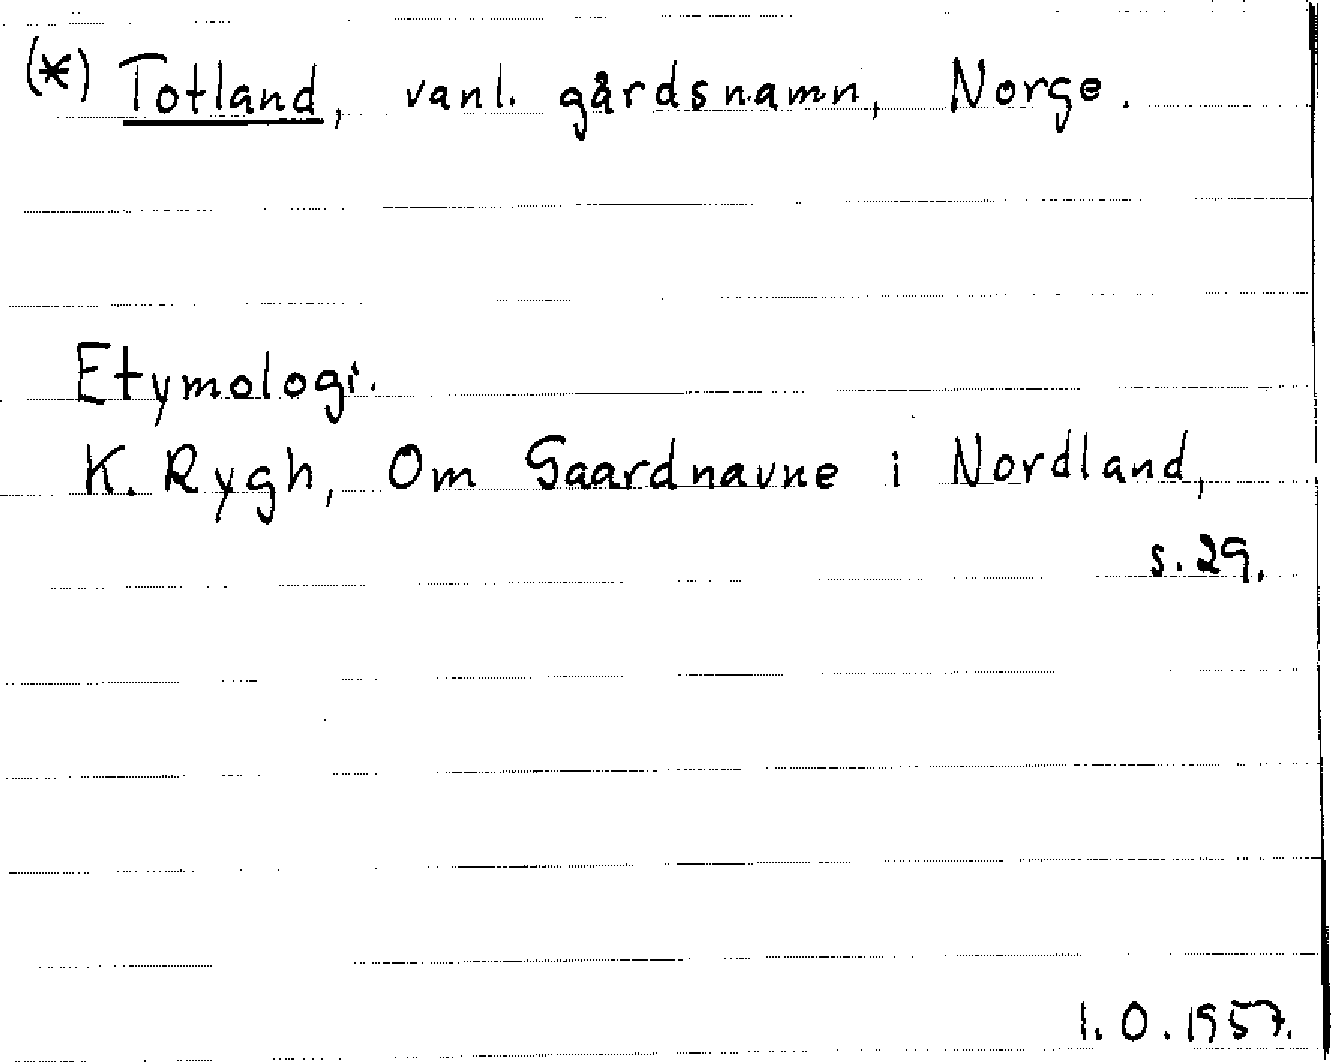 (*) Totland, vanl. gårdsnamn, Norge.
Etymologi.
K. Rygh, Om Gaardnavne i Nordland,
s. 29.
I. O. 1957.